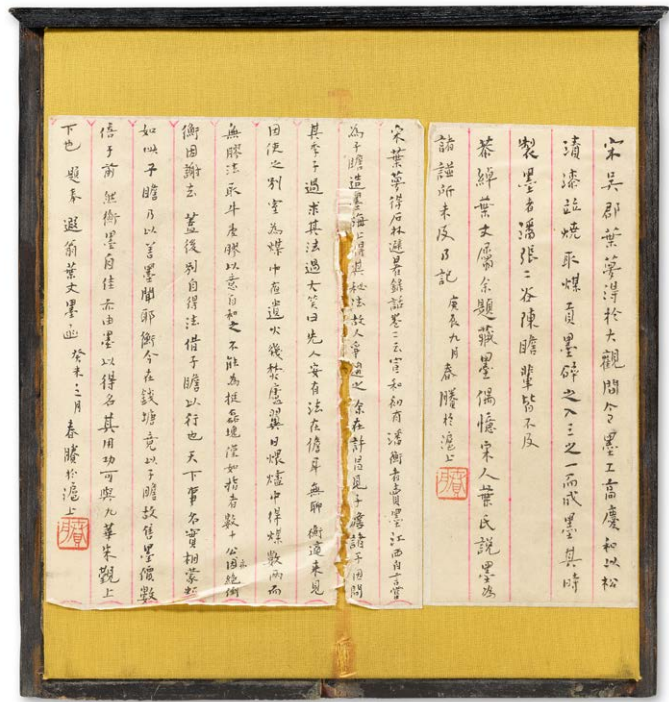 宋吳郡葉夢得於大觀間令墨工高慶和以松
漬漆並燒取煤貢墨碎之入三之一而成墨其時
製墨者潘張二谷陳瞻輩皆不及
恭綽葉丈屬余題藏墨偶憶宋人葉氏說墨為
諸謚所未及乃記 庚辰九月春騰於滬上
宋葉夢得石林避暑錄話卷二云宣和初有潘衡者賣墨江西自言嘗
為子瞻造墨海上得其秘法故人爭趨之余在許昌見子瞻諸子因問
其季子過求其法過大笑曰先人安有法在儋耳無聊衡適來見
因使之別室為煤中夜遺火幾焚廬翌日煨燼中得煤數兩而
無膠法取牛皮膠以意自和之不能為挺磊塊僅如指者數十公亦絕倒
衡因謝去蓋後別自得法借子瞻以行也天下事名實相蒙類
如此子瞻乃以善墨聞耶衡今在錢塘竟以子瞻故售墨價數
倍于前然衡墨自佳亦由墨以得名其用功可與九華朱覲上
下也 題奉 遐翁葉丈墨函 癸未三月 春騰於滬上